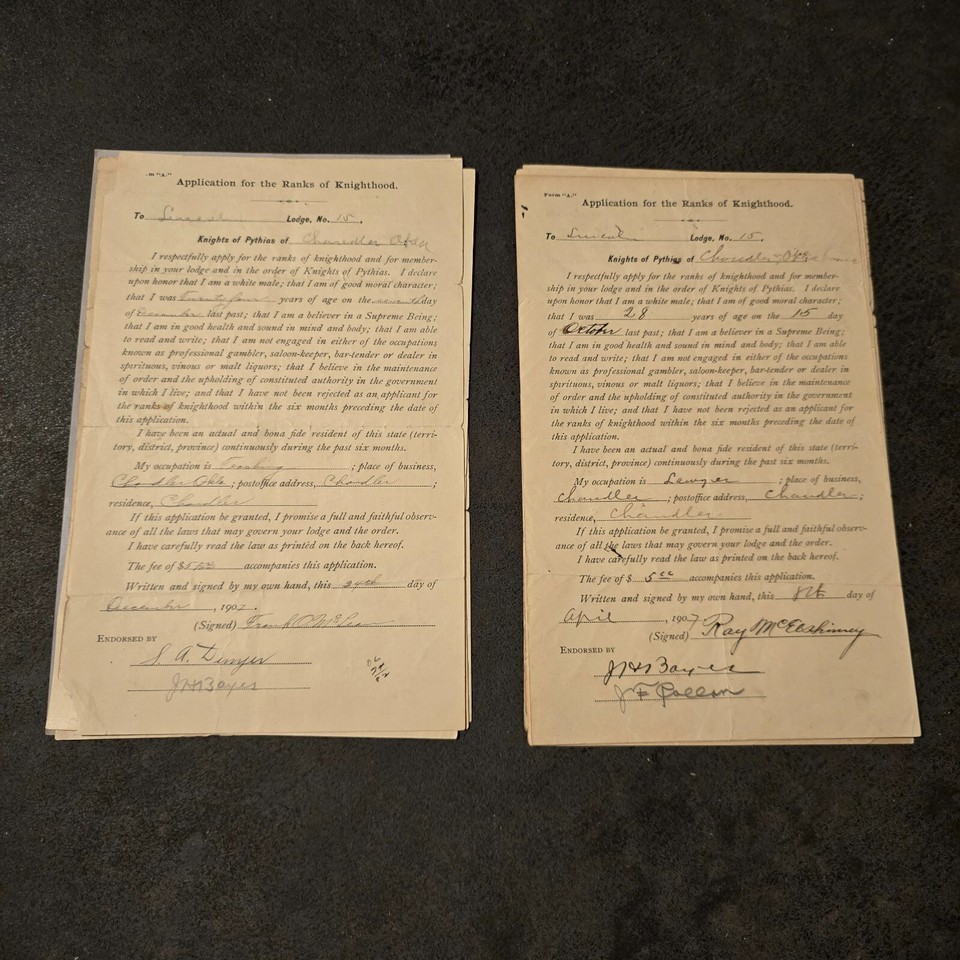 m "A."
Application for the Ranks of Knighthood.
To Lincoln Lodge, No. 15.
Knights of Pythias of Chandler Okla
I respectfully apply for the ranks of knighthood and for member-
ship in your lodge and in the order of Knights of Pythias. I declare
upon honor that I am a white male; that I am of good moral character;
that I was Twenty four years of age on the seventh day
of December last past; that I am a believer in a Supreme Being;
that I am in good health and sound in mind and body; that I am able
to read and write; that I am not engaged in either of the occupations
known as professional gambler, saloon-keeper, bar-tender or dealer in
spirituous, vinous or malt liquors; that I believe in the maintenance
of order and the upholding of constituted authority in the government
in which I live; and that I have not been rejected as an applicant for
the ranks of knighthood within the six months preceding the date of
this application.
I have been an actual and bona fide resident of this state (terri-
tory, district, province) continuously during the past six months.
My occupation is Teaching ; place of business,
Chandler Okla ; postoffice address, Chandler ;
residence, Chandler
If this application be granted, I promise a full and faithful observ-
ance of all the laws that may govern your lodge and the order.
I have carefully read the law as printed on the back hereof.
The fee of $ accompanies this application.
Written and signed by my own hand, this 24th day of
December , 1907.
(Signed) Frank O McLean
ENDORSED BY
S. A. Denyer
J H Bayes
Form "A."
Application for the Ranks of Knighthood.
To Lincoln Lodge, No. 15.
Knights of Pythias of Chandler,
I respectfully apply for the ranks of knighthood and for member-
ship in your lodge and in the order of Knights of Pythias. I declare
upon honor that I am a white male; that I am of good moral character;
that I was 28 years of age on the 15 day
of October last past; that I am a believer in a Supreme Being;
that I am in good health and sound in mind and body; that I am able
to read and write; that I am not engaged in either of the occupations
known as professional gambler, saloon-keeper, bar-tender or dealer in
spirituous, vinous or malt liquors; that I believe in the maintenance
of order and the upholding of constituted authority in the government
in which I live; and that I have not been rejected as an applicant for
the ranks of knighthood within the six months preceding the date of
this application.
I have been an actual and bona fide resident of this state (terri-
tory, district, province) continuously during the past six months.
My occupation is Lawyer ; place of business,
Chandler ; postoffice address, Chandler ;
residence, Chandler
If this application be granted, I promise a full and faithful observ-
ance of all the laws that may govern your lodge and the order.
I have carefully read the law as printed on the back hereof.
The fee of $ 5.00 accompanies this application.
Written and signed by my own hand, this 8th day of
April , 1907
(Signed) Roy McElhinney
ENDORSED BY
J H Bayes
J F